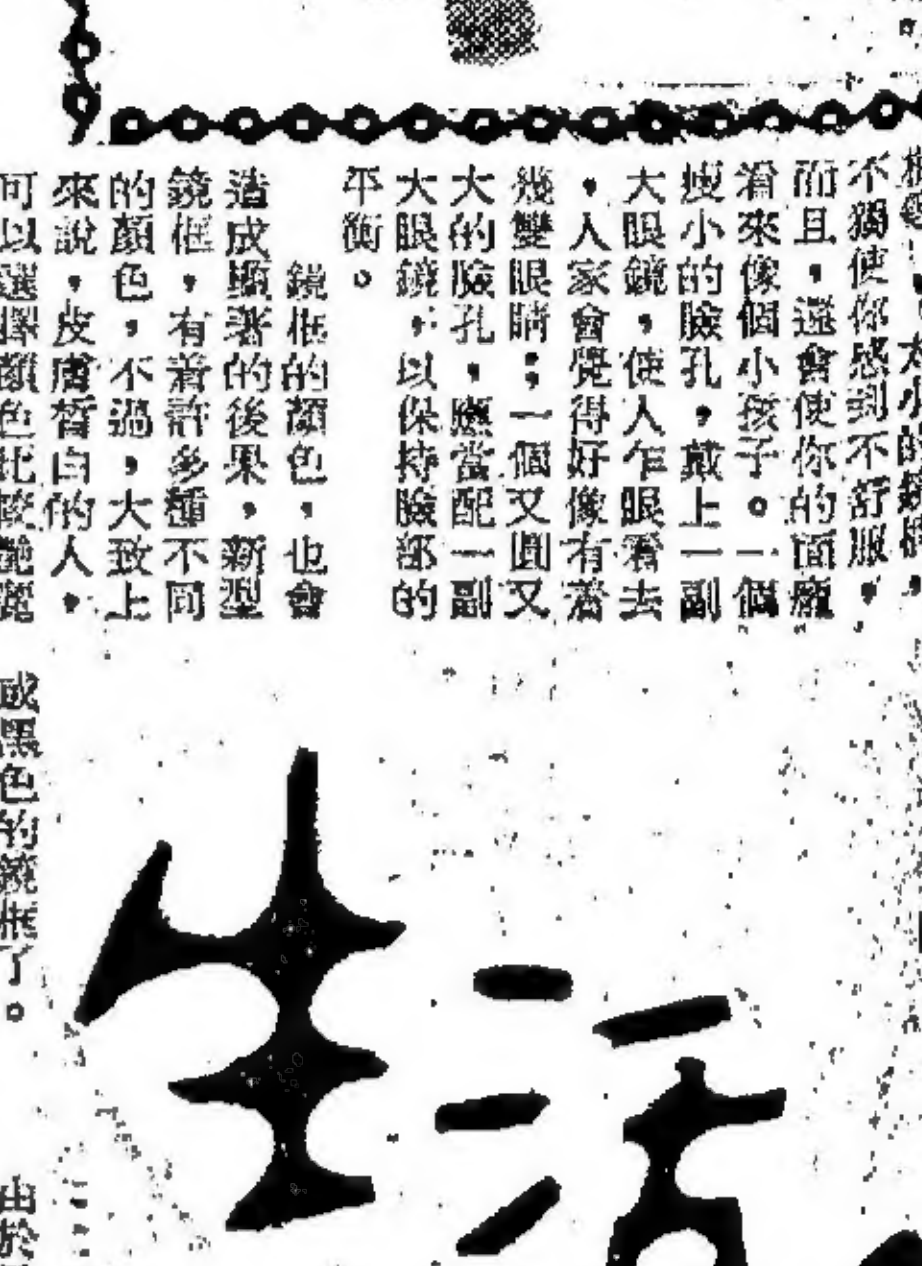 大小的鏡框，
不獨使你感到不舒服，
而且，還會使你的面龐
看來像個小孩子。一個
瘦小的臉孔，戴上一副
大眼鏡，使人乍眼看去
，人家會覺得好像有着
幾雙眼睛；一個又圓又
大的臉孔，應當配一副
大眼鏡，以保持臉部的
平衡。
鏡框的顏色，也會
造成顯著的後果，新型
鏡框，有着許多種不同
的顏色，不過，大致上
來說，皮膚皙白的人，
可以選擇顏色比較艷麗
或黑色的鏡框了。
由於
生活